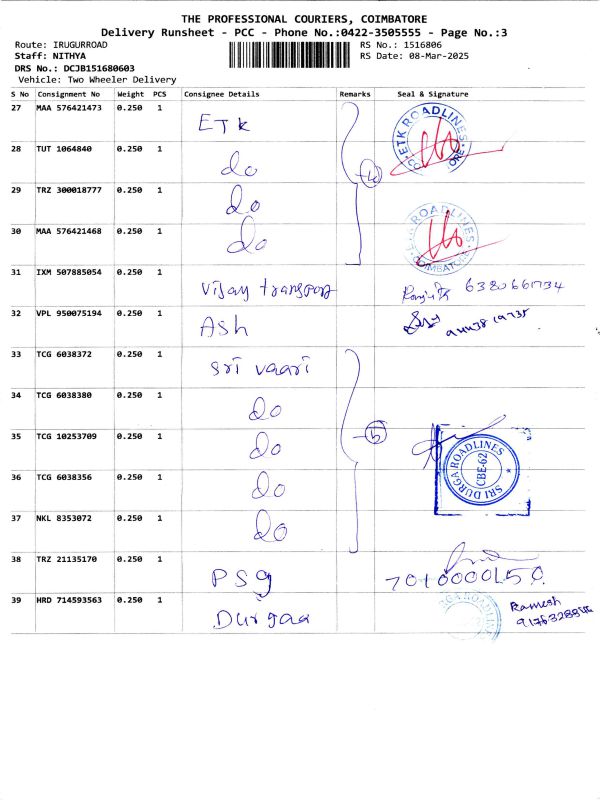 THE PROFESSIONAL COURIERS, COIMBATORE
Delivery Runsheet - PCC - Phone No.:0422-3505555 - Page No.:3
Route: IRUGURROAD RS No.: 1516806
Staff: NITHYA RS Date: 08-Mar-2025
DRS No.: DCJB151680603
Vehicle: Two Wheeler Delivery
S No Consignment No Weight PCS Consignee Details Remarks Seal & Signature
27 MAA 576421473 0.250 1 ETK
ETK ROADLINES
28 TUT 1064840 0.250 1 do
29 TRZ 300018777 0.250 1 do
30 MAA 576421468 0.250 1 do
ETK ROADLINES COIMBATORE
31 IXM 507885054 0.250 1 Vijay transport 6380661734
32 VPL 950075194 0.250 1 Ash
33 TCG 6038372 0.250 1 Sri Vaari
34 TCG 6038380 0.250 1 do
35 TCG 10253709 0.250 1 do
SRI DURGA ROADLINES CBE-62
36 TCG 6038356 0.250 1 do
37 NKL 8353072 0.250 1 do
38 TRZ 21135170 0.250 1 PSG
39 HRD 714593563 0.250 1 Durgaa Ramesh